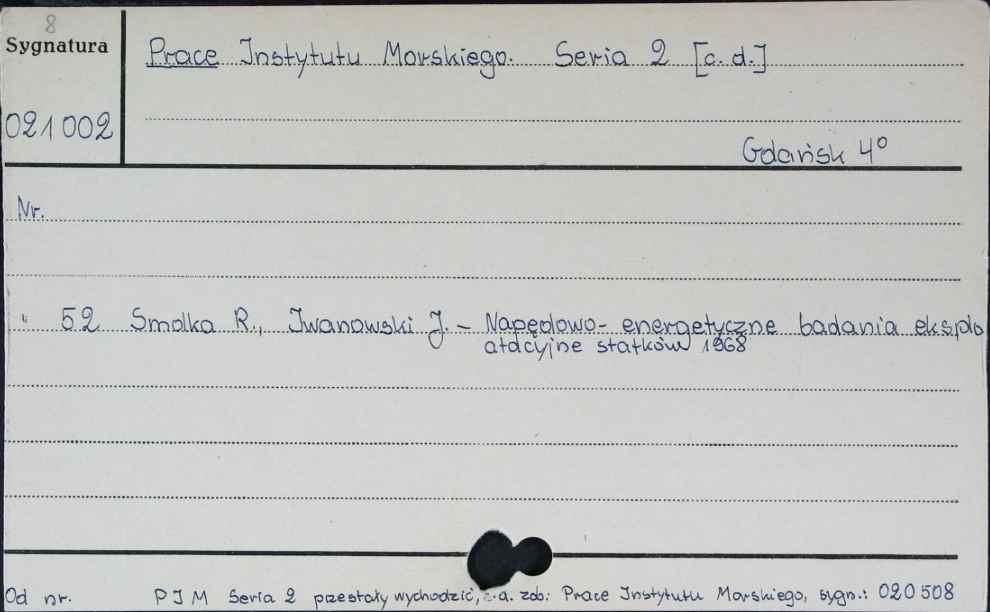 8
Sygnatura
021002
Prace Instytutu Morskiego. Seria 2 [c. d.]
Gdańsk 4°
Nr.
" 52 Smolka R., Iwanowski J. – Napędowo-energetyczne badania eksplo
atacyjne statków 1968
Od nr. PIM Seria 2 przestały wychodzić, zob: Prace Instytutu Morskiego, sygn.: 020508